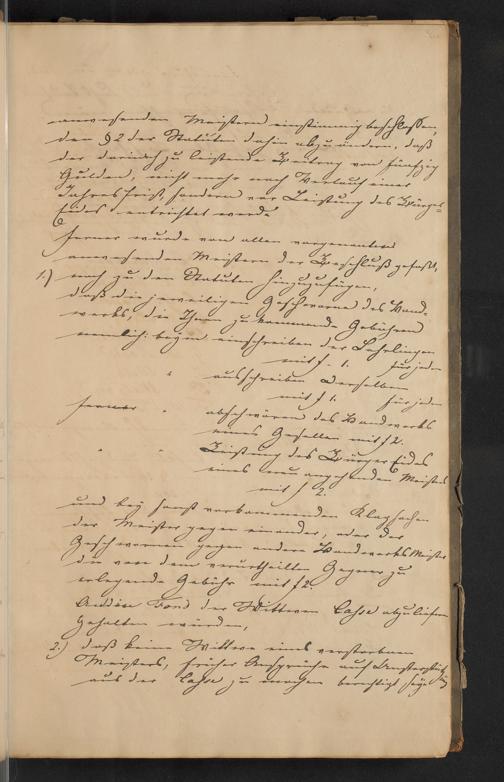 anwesenden Meistern einstimmig beschlossen,
den § 2 der Statuten dahin abzuändern, daß
der darnach zu leistende Beitrag von fünfzig
Gulden, nicht mehr nach Verlauf einer
Jahresfrist, sondern vor Leistung des Bürger-
Eides entrichtet werde
ferner wurde von allen vorgenannten
anwesenden Meistern der Beschluß gefaßt,
noch zu den Statuten hinzuzufügen,
1.) daß die jeweiligen Geschworne des Hand-
werks, die Ihnen zu kommende Gebühren
nemlich: beym einschreiben der Lehrlingen
mit f - 1. für jeden
" ausschreiben derselben
mit f 1. für jeden
ferner " abschwören des Handwerks
eines Gesellen mit f 2.
" " Leistung des Bürger Eides
eines neu angehenden Meisters
mit f 2.
und bey sonst vorkommenden Klagsachen
der Meister gegen einander, oder der
Geschwornen gegen andere Handwerks Meister
die von dem verurtheilten Gegner zu
erlegende Gebühr mit f 2.
An den Fond der Wittwen Casse abzuliefern
gehalten würden,
2.) daß keine Wittwe eines verstorbenen
Meisters, früher Ansprüche auf Unterstützung
aus der Casse zu machen berechtigt seye